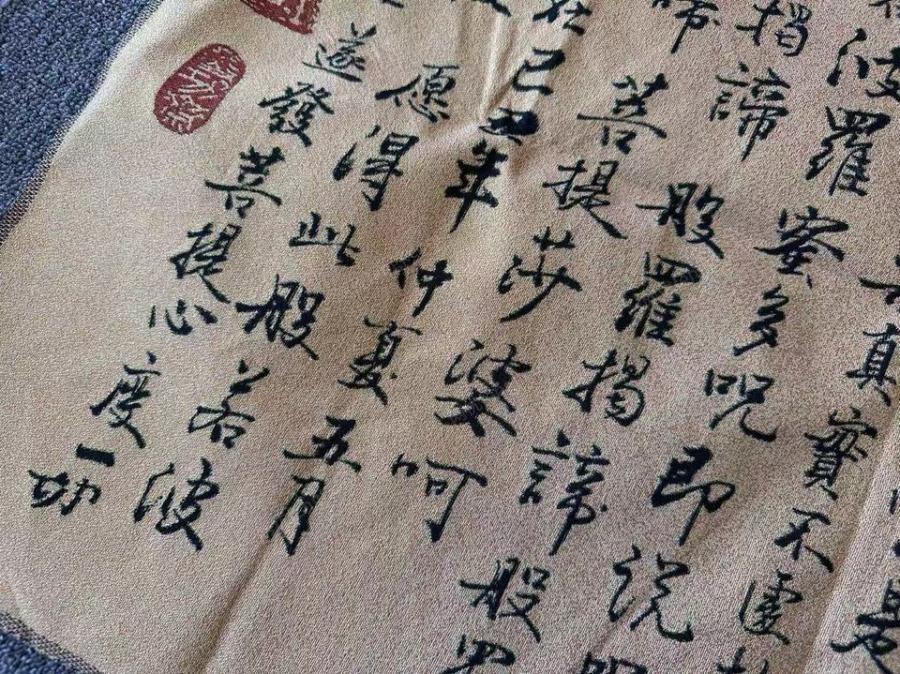 是
真實不虛
波羅蜜多咒即說
揭諦般羅揭諦般羅
諦菩提莎婆呵
在己丑年仲夏五月
愿得此般若波
遂發菩提心度一切